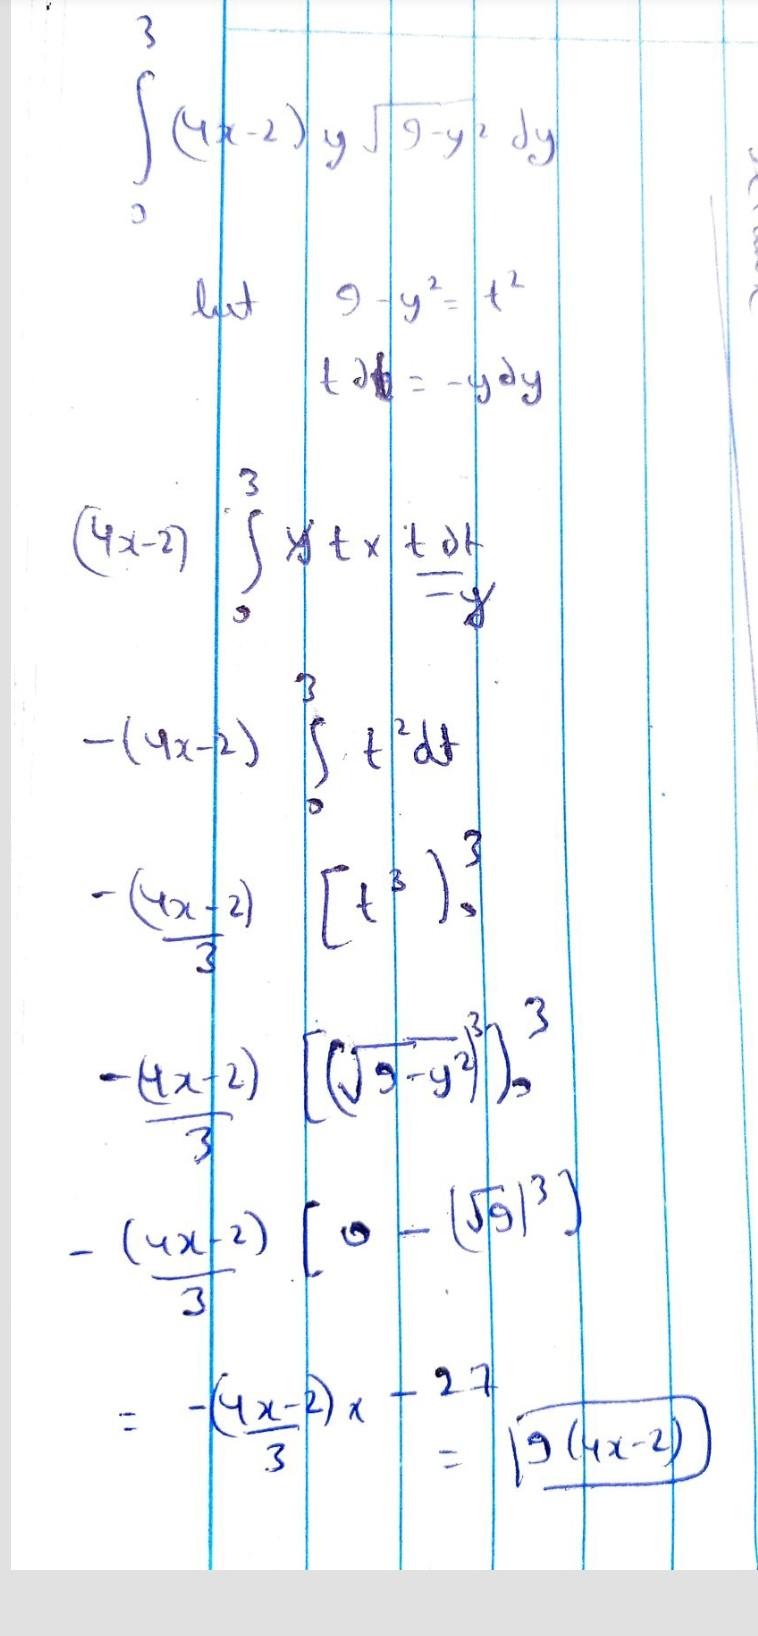 ∫₀³ (4x-2) y √(9-y²) dy
let 9-y² = t²
t dt = -y dy
(4x-2) ∫₀³ y t × t dt / -y
-(4x-2) ∫₀³ t² dt
-(4x-2)/3 [t³]₀³
-(4x-2)/3 [(√(9-y²))³]₀³
-(4x-2)/3 [0 - (√9)³]
= -(4x-2)/3 × -27
= 9(4x-2)